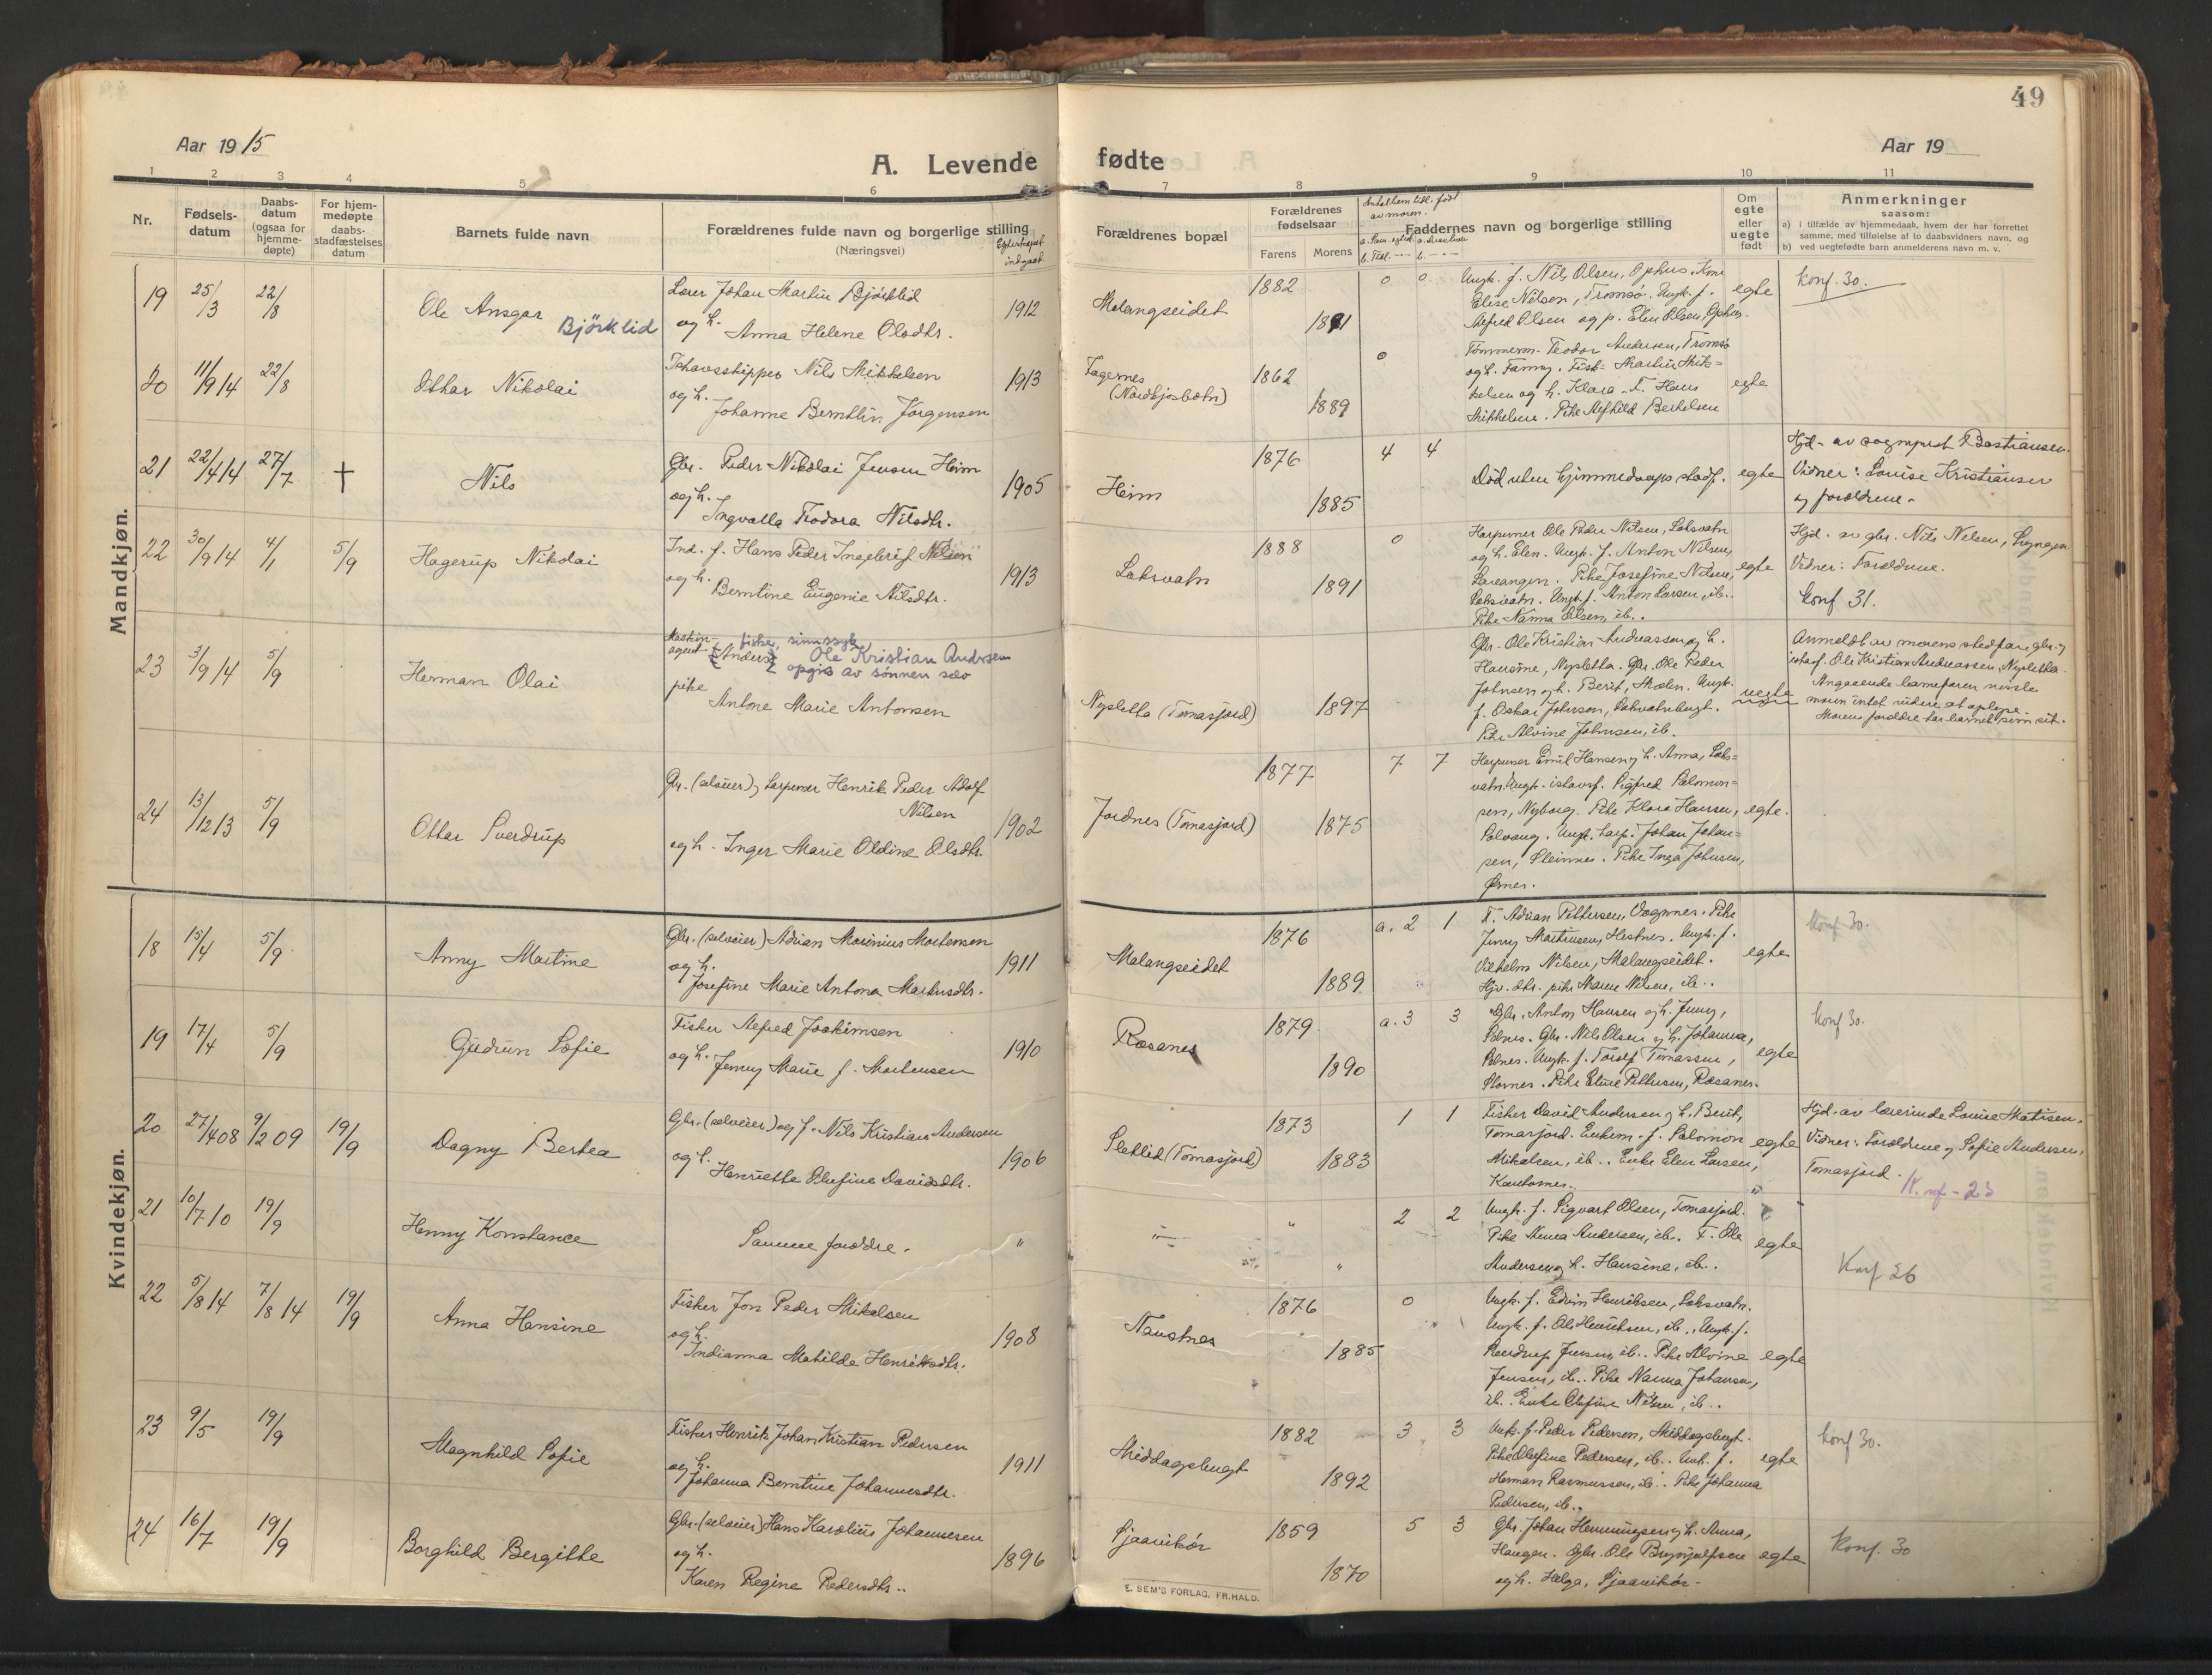 49
Aar 1915
A. Levende fødte
Aar 19
1 2 3 4 5 6 7 8 9 10 11
Nr.
Fødsels-
datum
Daabs-
datum
(ogsaa for
hjemme-
døpte)
For hjem-
medøpte
daabs-
stadfæstelses
datum
Barnets fulde navn
Forældrenes fulde navn og borgerlige stilling
(Næringsvei)
Egteskapet
indgaat
Forældrenes bopæl
Forældrenes
fødselsaar
Farens Morens
Faddernes navn og borgerlige stilling
Om
egte
eller
uegte
født
Anmerkninger
saasom:
a) i tilfælde av hjemmedaab, hvem der har forrettet
samme, med tilføielse af to daabsvidners navn, og
b) ved uegtefødte barn anmelderens navn m. v.
Mandkjøn.
19 25/3 22/8
Ole Ansgar Bjørklid
Lærer Johan Martin Bjørklid
og h. Anna Helene Olsdtr.
1912
Malangseidet
1882
1891
0 0
Ungk. f. Nils Olsen, Ophus. Kone
Elise Nilsen, Tromsø. Ungk. f.
Alfred Olsen og p. Elen Olsen, Ophus.
egte
Konf. 30.
20 11/9 14 22/8
Othar Nikolai
Ishavsskipper Nils Mikkelsen
og h. Johanne Berntlin Jørgensen
1913
Fagernes
(Nordkjosbotn)
1862
1889
0
Tømmerm. Teodor Andersen, Tromsø
og h. Fanny. Fisk. Martin Mik=
kelsen og h. Klara. F. Hans
Mikkelsen. Pike Alfhild Berkelsen
egte
21 22/4 14 27/7 †
Nils
Gbr. Peder Nikolai Jensen Heim
og h. Ingvalla Teodora Nilsdtr.
1905
Heim
1876
1885
4 4
Død uten hjemmedaaps stadf.
egte
Hjd. av sogneprest Bastiansen.
Vidner: Louise Kristiansen
og forældrene.
22 30/9 14 4/1 5/9
Hagerup Nikolai
Ind. f. Hans Peder Ingebrigt Nilsen
og h. Berntine Eugenie Nilsdtr.
1913
Laksvatn
1888
1891
0
Harpuner Ole Peder Nilsen, Laksvatn
og h. Elen. Ungk. f. Anton Nilsen,
Lavangen. Pike Josefine Nilsen,
Laksvatn. Ungk. f. Anton Larsen, ib.
Pike Nanna Olsen, ib..
egte
Hjd. av gbr. Nils Nilsen, Lyngen
Vidner: Forældrene.
Konf 31.
23 3/9 14 5/9
Herman Olai
Maskin-
agent Anders fisker, sinnssyk
Ole Kristian Andersen
opgis av sønnen selv
pike Antone Marie Antonsen
Nysletta (Tomasjord)
1897
Gbr. Ole Kristian Andreassen og h.
Hansine, Nysletta. Gbr. Ole Peder
Johnsen og h. Berit, Moen. Ungk.
f. Oskar Johnsen, Laksvatnbugt.
Pike Alvine Johnsen, ib.
uegte
Anmeldt av morens stedfar gbr. og
ishavf. Ole Kristian Andreassen, Nysletta.
Angaaende barnefaren visste
moren intet videre at oplyse.
Morens forældre tar barnet som sit.
24 13/12 13 5/9
Ottar Sverdrup
Gbr. (selveier) og harpuner Henrik Peder Adolf
Nilsen
og h. Inger Marie Oldine Olsdtr.
1902
Jordnes (Tomasjord)
1877
1875
7 7
Harpuner Emil Hansen og h. Anna, Laks=
vatn. Ungk. ishavsf. Sigfred Salomon=
sen, Nyborg. Pike Klara Hansen,
Solvang. Ungk. harp. Johan Johan=
sen, Steinnes. Pike Inga Johnsen,
Ørnes.
egte.
Kvindekjøn.
18 15/4 5/9
Anny Martine
Gbr. (selveier) Adrian Marinius Mortensen
og h.
Josefine Marie Antona Markusdtr.
1911
Malangseidet
1876
1889
a. 2 1
F. Adrian Pettersen, Vognnes. Pike
Jenny Martinsen, Hestnes. Ungk. f.
Vilhelm Nilsen, Malangseidet.
Hjv. dtr. pike Maren Nilsen, ib..
egte
Konf 30.
19 17/4 5/9
Gudrun Sofie
Fisker Alfred Joakimsen
og h. Jenny Marie f. Mortensen
1910
Rosanes
1879
1890
a. 3 3
Gbr. Anton Hansen og h. Jenny,
Selnes. Gbr. Nils Olsen og h. Johanna,
Selnes. Ungk. f. Torolf Tomassen,
Slornes. Pike Eline Pettersen, Rosanes.
egte
Konf 30.
20 27/4 08 9/2 09 19/9
Dagny Bertea
Gbr. (selveier) og f. Nils Kristian Andersen
og h. Henriette Olufine Davidsdtr.
1906
Sletlid (Tomasjord)
1873
1883
1 1
Fisker David Andersen og h. Berit,
Tomasjord. Enkem. f. Salomon
Mikalsen, ib.. Enke Elen Larsen,
Kantornes.
egte
Hjd. av lærerinde Louise Matisen.
Vidner: Forældrene og Sofie Andersen,
Tomasjord.
Konf - 23
21 10/7 10 19/9
Henny Konstance
Samme forældre.
"
" " "
2 2
Ungk. f. Sigvart Olsen, Tomasjord.
Pike Anna Andersen, ib. F. Ole
Andersen og h. Hansine, ib..
egte
Konf 26
22 5/8 14 7/8 14 19/9
Anna Hansine
Fisker Jon Peder Mikalsen
og h.
Indianna Matilde Henriksdtr.
1908
Naustnes
1876
1885
0
Ungk. f. Edvin Henriksen, Laksvatn.
Ungk. f. Ole Henriksen, ib.. Ungk. f.
Sverdrup Jensen, ib.. Pike Alvine
Jensen, ib.. Pike Nanna Johansen,
ib. Enke Olufine Nilsen, ib..
egte
23 9/5 19/9
Magnhild Sofie
Fisker Henrik Johan Kristian Pedersen
og h.
Johanna Berntine Johannesdtr.
1911
Middagsbugt
1882
1892
3 3
Ungk. f. Peder Pedersen, Middagsbugt.
Pike Olufine Pedersen, ib.. Ungk. f.
Herman Rasmussen, ib.. Pike Johanna
Pedersen, ib..
egte
Konf 30.
24 16/7 19/9
Borghild Bergitte
Gbr. (selveier) Hans Karolius Johannesen
og h.
Karen Regine Pedersdtr..
1896
Sjaavikør
1859
1870
5 3
Gbr. Johan Henningsen og h. Anna,
Haugen. Gbr. Ole Brynjulfsen
og h. Helga, Sjaavikør.
egte
Konf. 30
E. SEM'S FORLAG, FR.HALD.